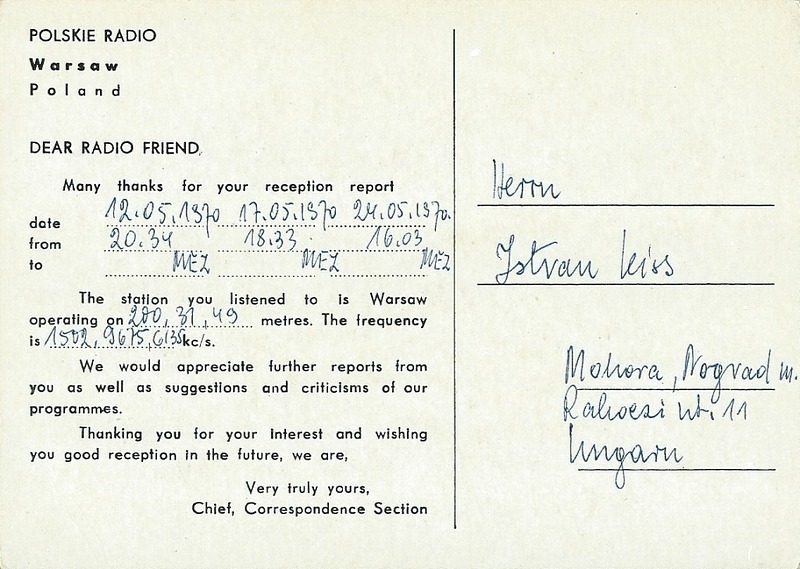 POLSKIE RADIO
Warsaw
Poland
DEAR RADIO FRIEND,
Many thanks for your reception report
date 12.05.1970 17.05.1970 24.05.1970.
from 20.34 18.33 16.03
to MEZ MEZ MEZ
The station you listened to is Warsaw
operating on 200, 31, 49 metres. The frequency
is 1502, 9675, 6135 kc/s.
We would appreciate further reports from
you as well as suggestions and criticisms of our
programmes.
Thanking you for your interest and wishing
you good reception in the future, we are,
Very truly yours,
Chief, Correspondence Section
Herrn
Istvan Kiss
Mohora, Nograd m.
Rakoczi ut. 11
Ungarn